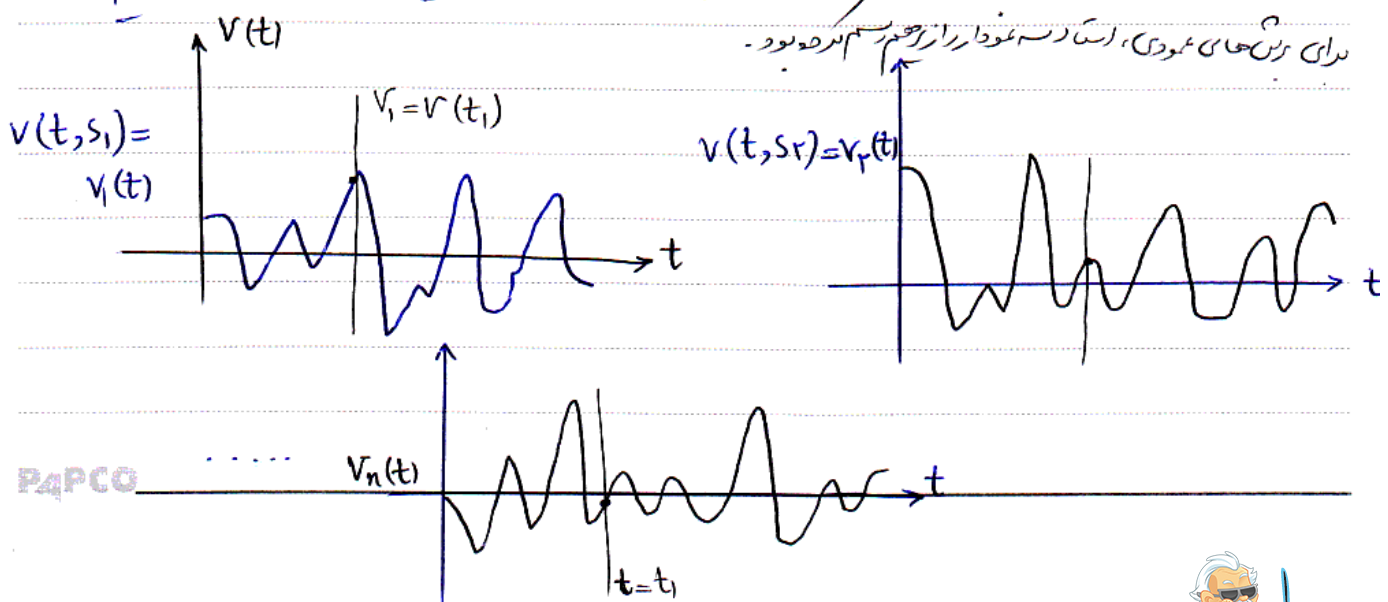 برای برش‌های عمودی، استاد سه نمودار را زیر هم رسم کرده بود.
V(t)
V₁=V(t₁)
V(t,S₁)=
V₁(t)
t
V(t,S۲)=V۲(t)
t
.....
Vn(t)
t
t=t₁
PAPCO